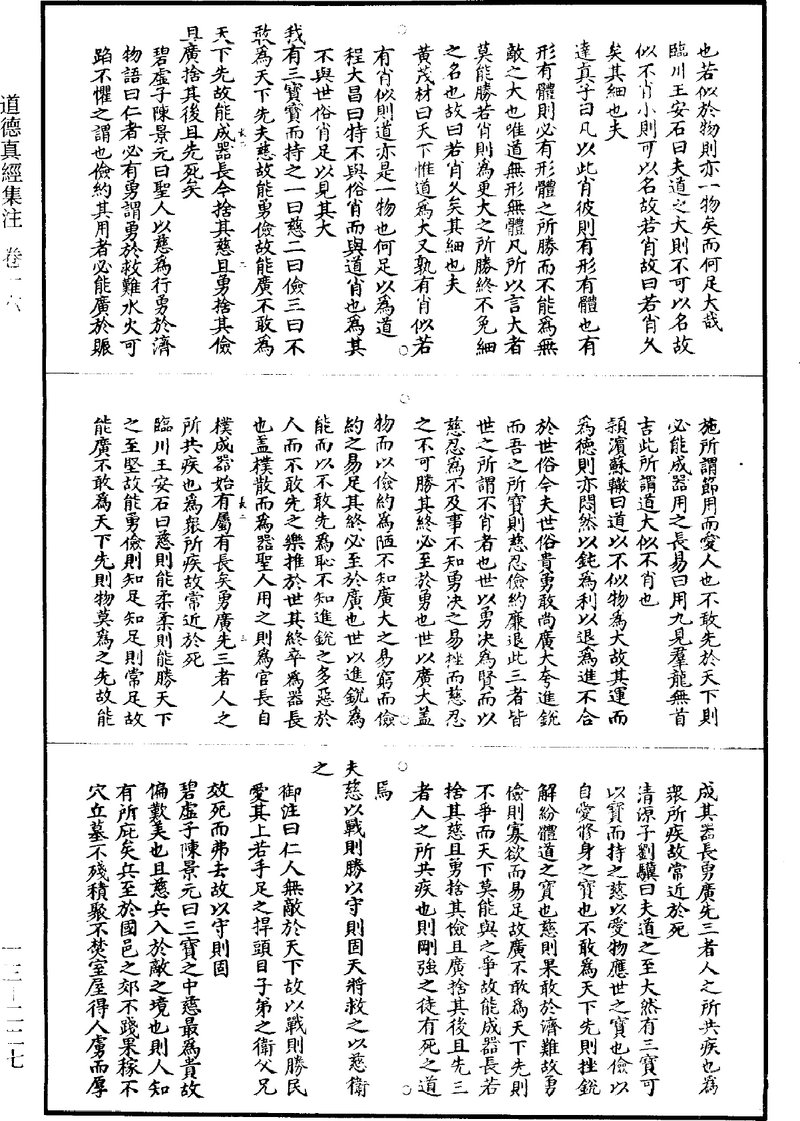 道德真經集注 卷十六
一三—二二七
也若似於物則亦一物矣而何足大哉
臨川王安石曰夫道之大則不可以名故
似不肖小則可以名故若肖故曰若肖久
矣其細也夫
達真子曰凡以此肖彼則有形有體也有
形有體則必有形體之所勝而不能為無
敵之大也唯道無形無體凡所以言大者
莫能勝若肖則為更大之所勝終不免細
之名也故曰若肖久矣其細也夫
黃茂材曰天下惟道為大又孰有肖似若
有肖似則道亦是一物也何足以為道
程大昌曰特不與俗肖而與道肖也為其
不與世俗肖足以見其大
我有三寶寶而持之一曰慈二曰儉三曰不
敢為天下先夫慈故能勇儉故能廣不敢為
天下先故能成器長今捨其慈且勇捨其儉
且廣捨其後且先死矣
碧虛子陳景元曰聖人以慈為行勇於濟
物語曰仁者必有勇謂勇於救難水火可
蹈不懼之謂也儉約其用者必能廣於賑
施所謂節用而愛人也不敢先於天下則
必能成器用之長易曰用九見羣龍無首
吉此所謂道大似不肖也
潁濱蘇轍曰道以不似物為大故其運而
為德則亦悶然以鈍為利以退為進不合
於世俗今夫世俗貴勇敢尚廣大夸進銳
而吾之所寶則慈忍儉約廉退此三者皆
世之所謂不肖者也世以勇決為賢而以
慈忍為不及事不知勇決之易挫而慈忍
之不可勝其終必至於勇也世以廣大蓋
物而以儉約為陋不知廣大之易窮而儉
約之易足其終必至於廣也世以進銳為
能而以不敢先為恥不知進銳之多惡於
人而不敢先之樂推於世其終卒為器長
也蓋樸散而為器聖人用之則為官長自
樸成器始有屬有長矣勇廣先三者人之
所共疾也為衆所疾故常近於死
臨川王安石曰慈則能柔柔則能勝天下
之至堅故能勇儉則知足知足則常足故
能廣不敢為天下先則物莫為之先故能
成其器長勇廣先三者人之所共疾也為
衆所疾故常近於死
清源子劉驥曰夫道之至大然有三寶可
以寶而持之慈以愛物應世之寶也儉以
自愛脩身之寶也不敢為天下先則挫銳
解紛體道之寶也慈則果敢於濟難故勇
儉則寡欲而易足故廣不敢為天下先則
不爭而天下莫能與之爭故能成器長若
捨其慈且勇捨其儉且廣捨其後且先三
者人之所共疾也則剛強之徒有死之道
焉
夫慈以戰則勝以守則固天將救之以慈衛
之
御注曰仁人無敵於天下故以戰則勝民
愛其上若手足之捍頭目子弟之衛父兄
效死而弗去故以守則固
碧虛子陳景元曰三寶之中慈最為貴故
偏歎美也且慈兵入於敵之境也則人知
有所庇矣兵至於國邑之郊不踐果稼不
穴丘墓不殘積聚不焚室屋得人虜而厚